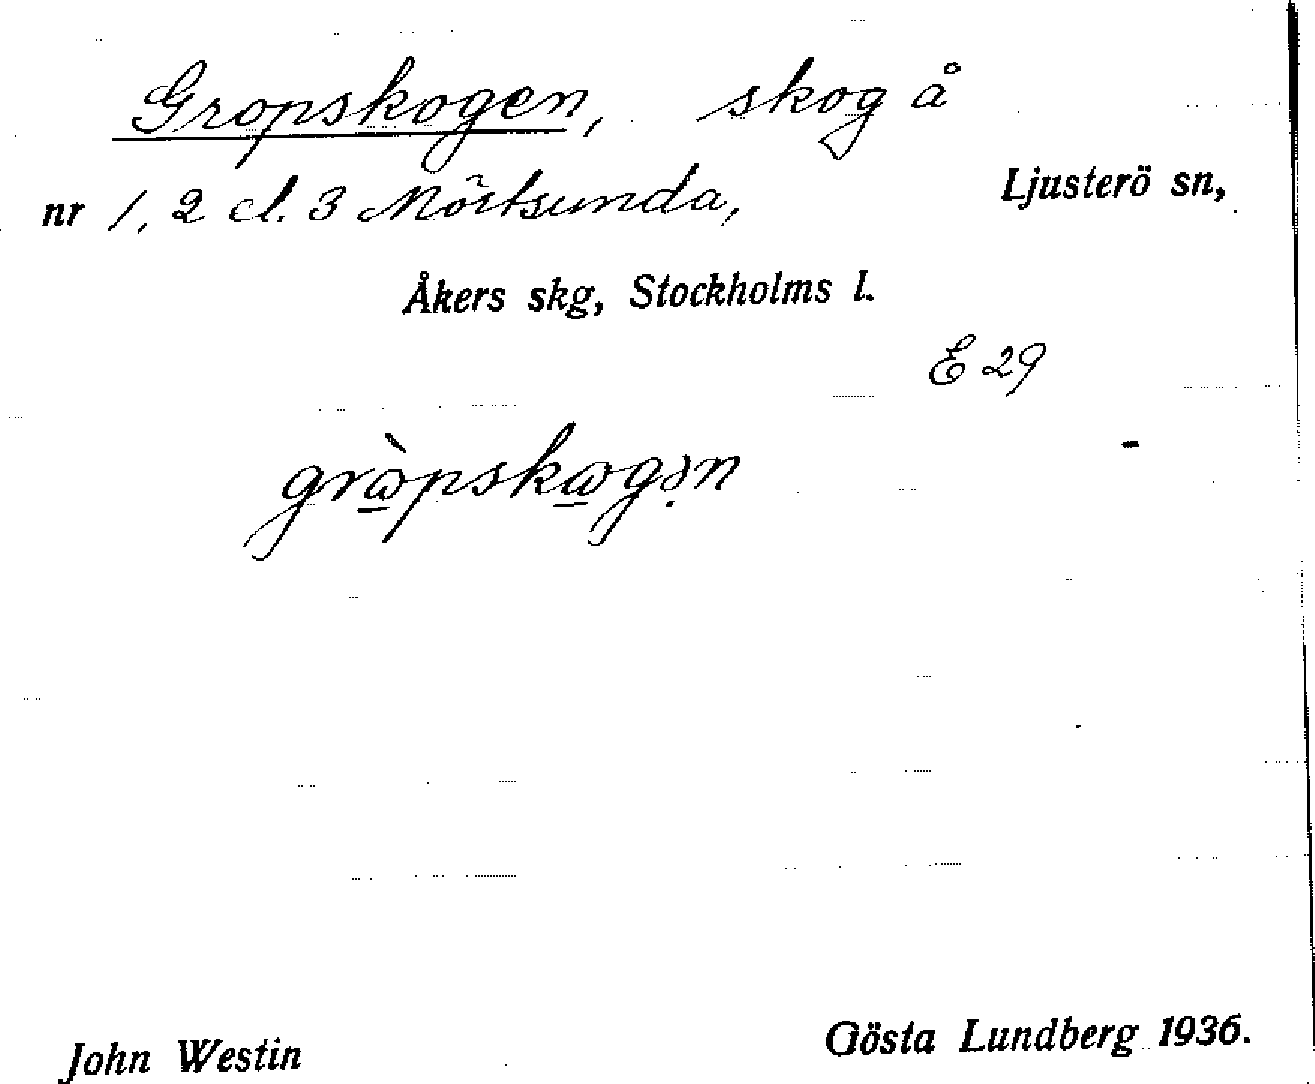 Gropskogen, skog å
nr 1, 2 el. 3 Mörtsunda, Ljusterö sn,
Åkers skg, Stockholms l.
E 29
grɷ̀pskɷgə̣n
John Westin Gösta Lundberg 1936.